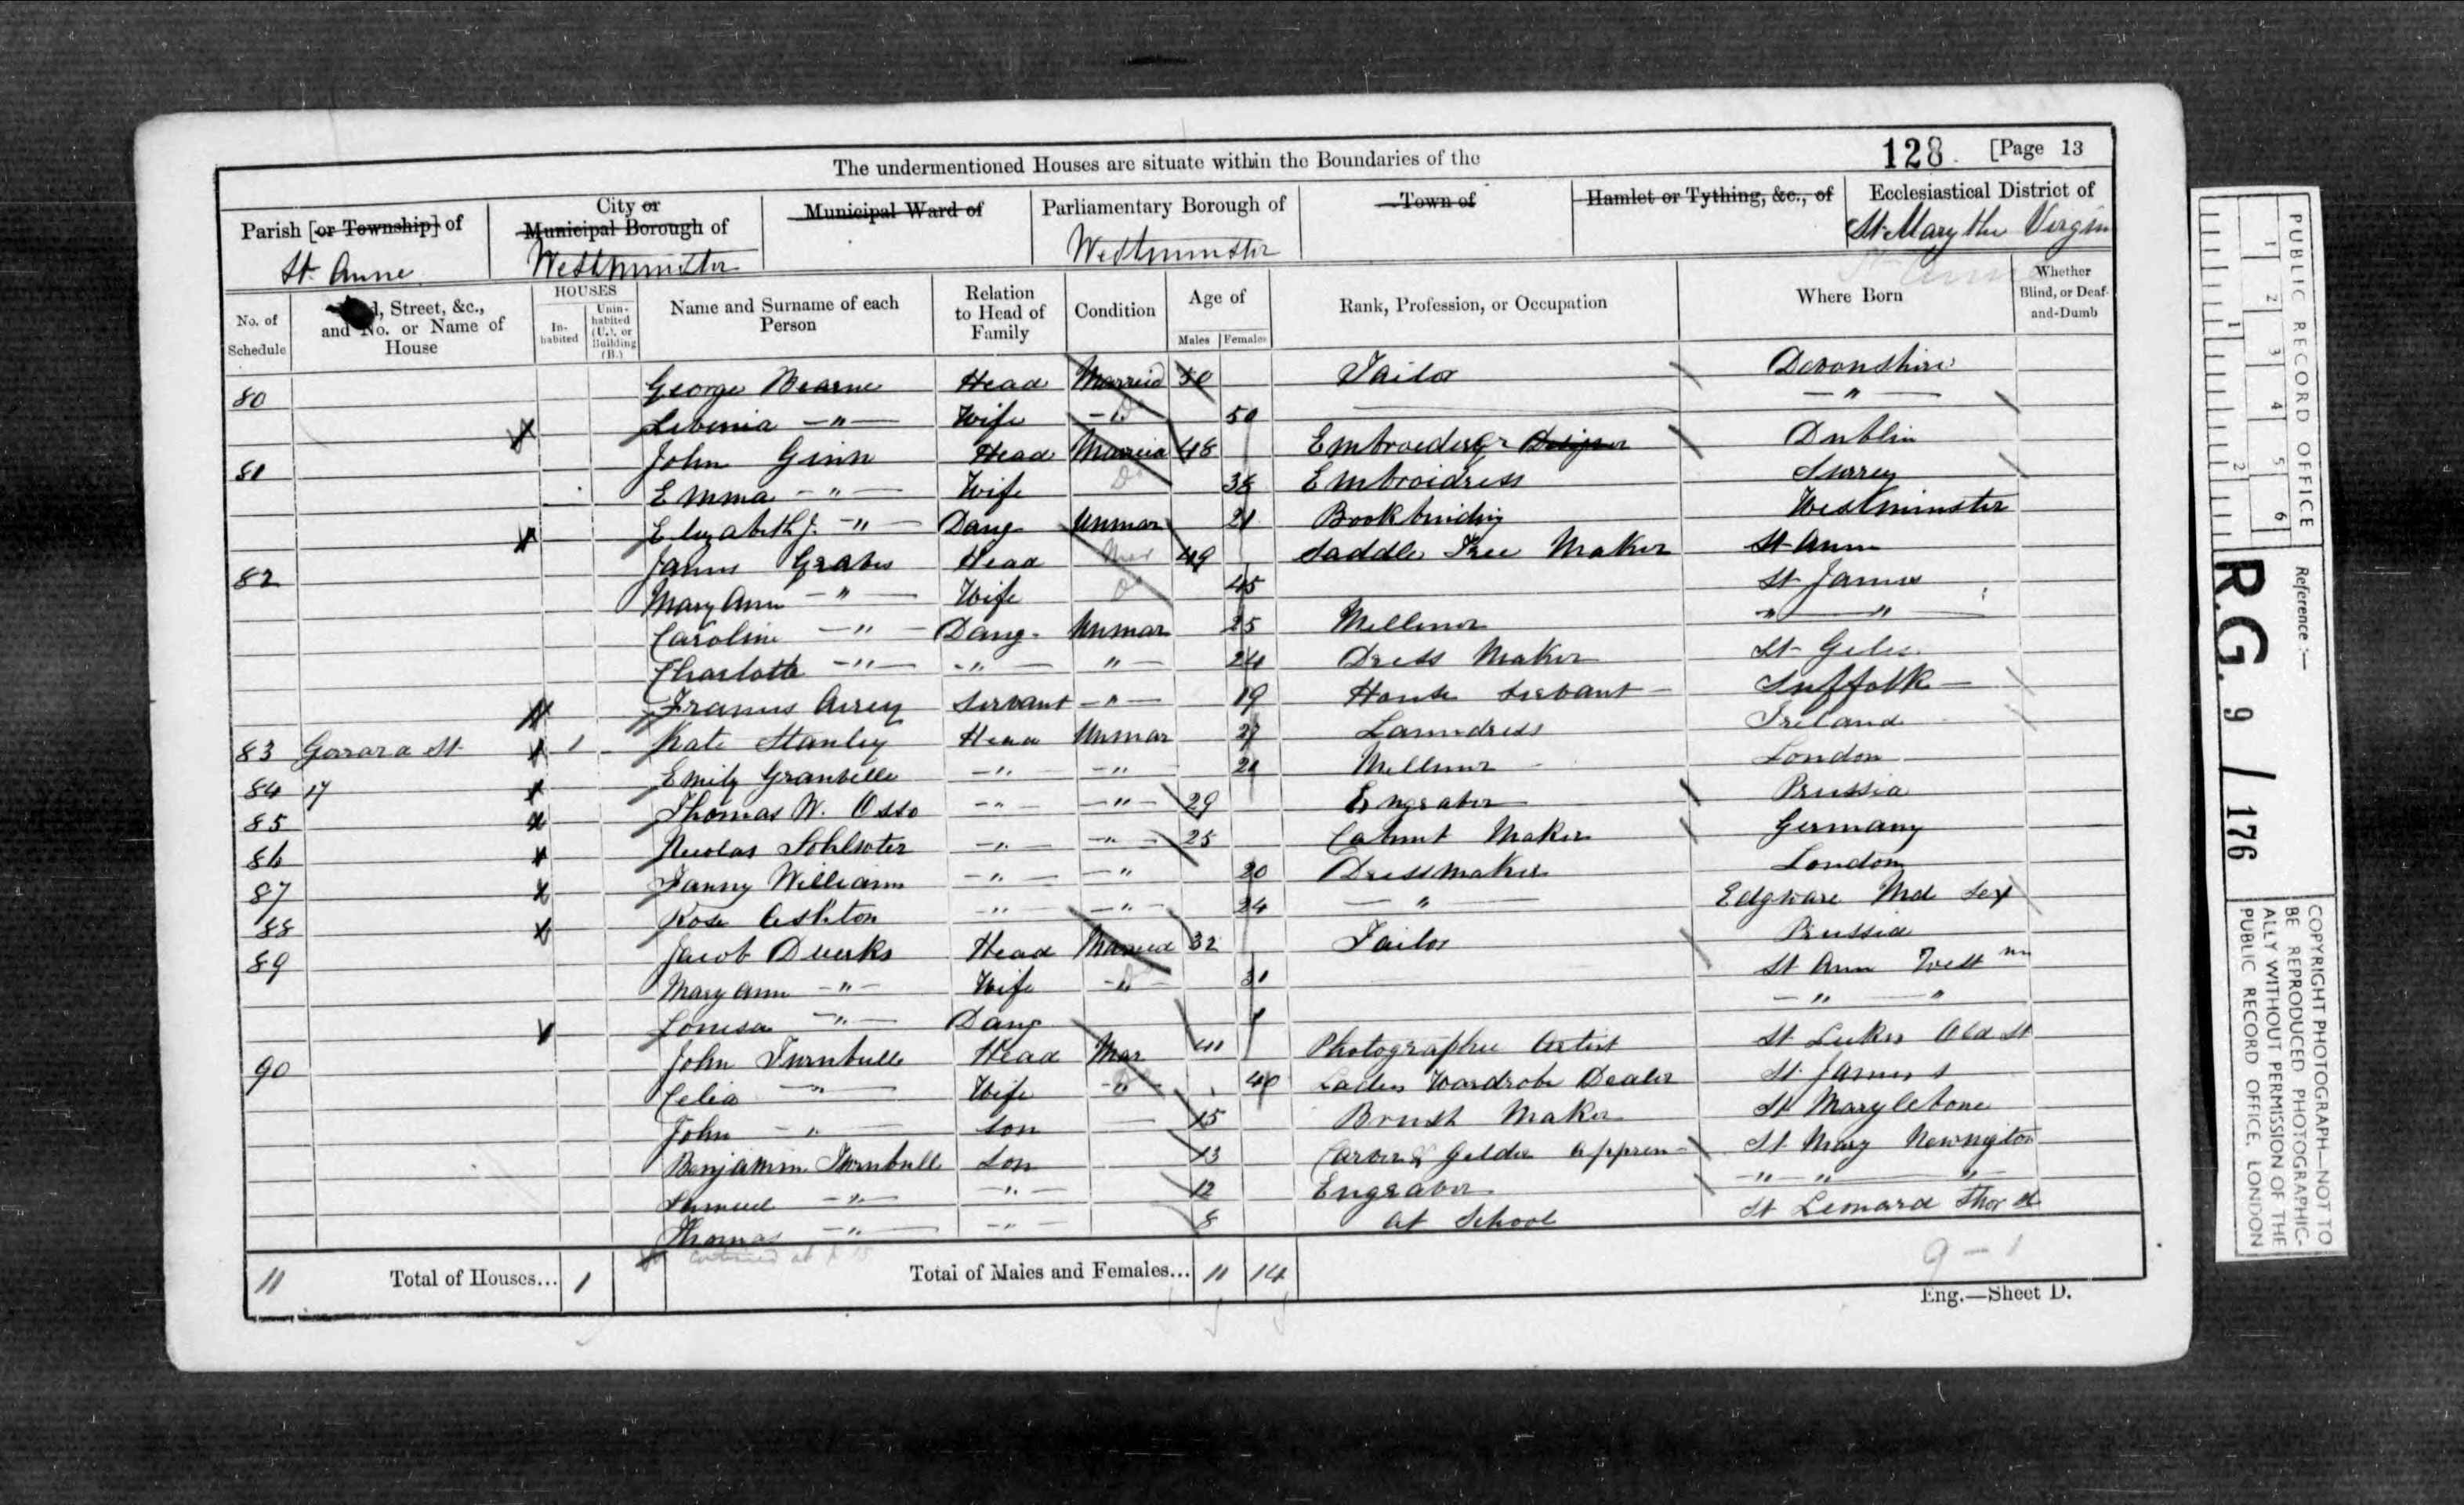 The undermentioned Houses are situate within the Boundaries of the
128 [Page 13
Parish [or Township] of
St. Anne
City or Municipal Borough of
Westminster
Municipal Ward of
Parliamentary Borough of
Westminster
Town of
Hamlet or Tything, &c., of
Ecclesiastical District of
St Mary the Virgin
No. of Schedule
Street, &c., and No. or Name of House
HOUSES
In-habited
Unin-habited (U.), or Building (B.)
Name and Surname of each Person
Relation to Head of Family
Condition
Age of
Males Females
Rank, Profession, or Occupation
Where Born
Whether Blind, or Deaf-and-Dumb
80 George Head Married 50 Tailor Devonshire
Lavinia — " — Wife — " 50 — " —
81 John Ginn Head Married 48 Embroiderer Designer Dublin
Emma — " — Wife Do 38 Embroidress Surrey
Elizabeth J. — " — Daug Unmar 21 Bookbinding Westminster
82 James Graves Head Mar 49 Saddle Tree Maker St Ann
Mary Ann — " — Wife Do 45 St James
Caroline — " — Daug. Unmar 25 Milliner " — "
Charlotte — " — — " — " — 24 Dress Maker St Giles
Frances Airey Servant — " — 19 House Servant Suffolk
83 Gerrard St 1 Kate Stanley Head Unmar 27 Laundress Ireland
84 17 Emily Granville — " — — " 21 Milliner London
85 Thomas W. Osso — " — — " — 29 Engraver Prussia
86 Nicolas — " — — " — 25 Cabinet Maker Germany
87 Fanny Williams — " — — " 20 Dressmaker London
88 Rose Ashton — " — " — 24 — " — Edgware Md Sex
89 Jacob Duerks Head Married 32 Tailor Prussia
Mary Ann — " — Wife — " — 31 St Ann West mn
Louisa — " — Daug 1 — " — "
90 John Turnbull Head Mar 41 Photographic Artist St Lukes Old St
Celia — " — Wife — " 40 Ladies Wardrobe Dealer St James
John — " — Son 15 Brush Maker St Marylebone
Benjamin Turnbull Son 13 Carver & Gilder Appren St Mary Newington
Samuel — " — — " — 12 Engraver — " — " — "
Thomas — " — — " — 8 At School St Leonard Shor d
11 Total of Houses... 1
Total of Males and Females... 11 14
9 – 1
Eng.—Sheet D.
PUBLIC RECORD OFFICE
1 2 3 4 5 6
1 2
Reference :—
R.G. 9 / 176
COPYRIGHT PHOTOGRAPH—NOT TO
BE REPRODUCED PHOTOGRAPHIC-
ALLY WITHOUT PERMISSION OF THE
PUBLIC RECORD OFFICE, LONDON